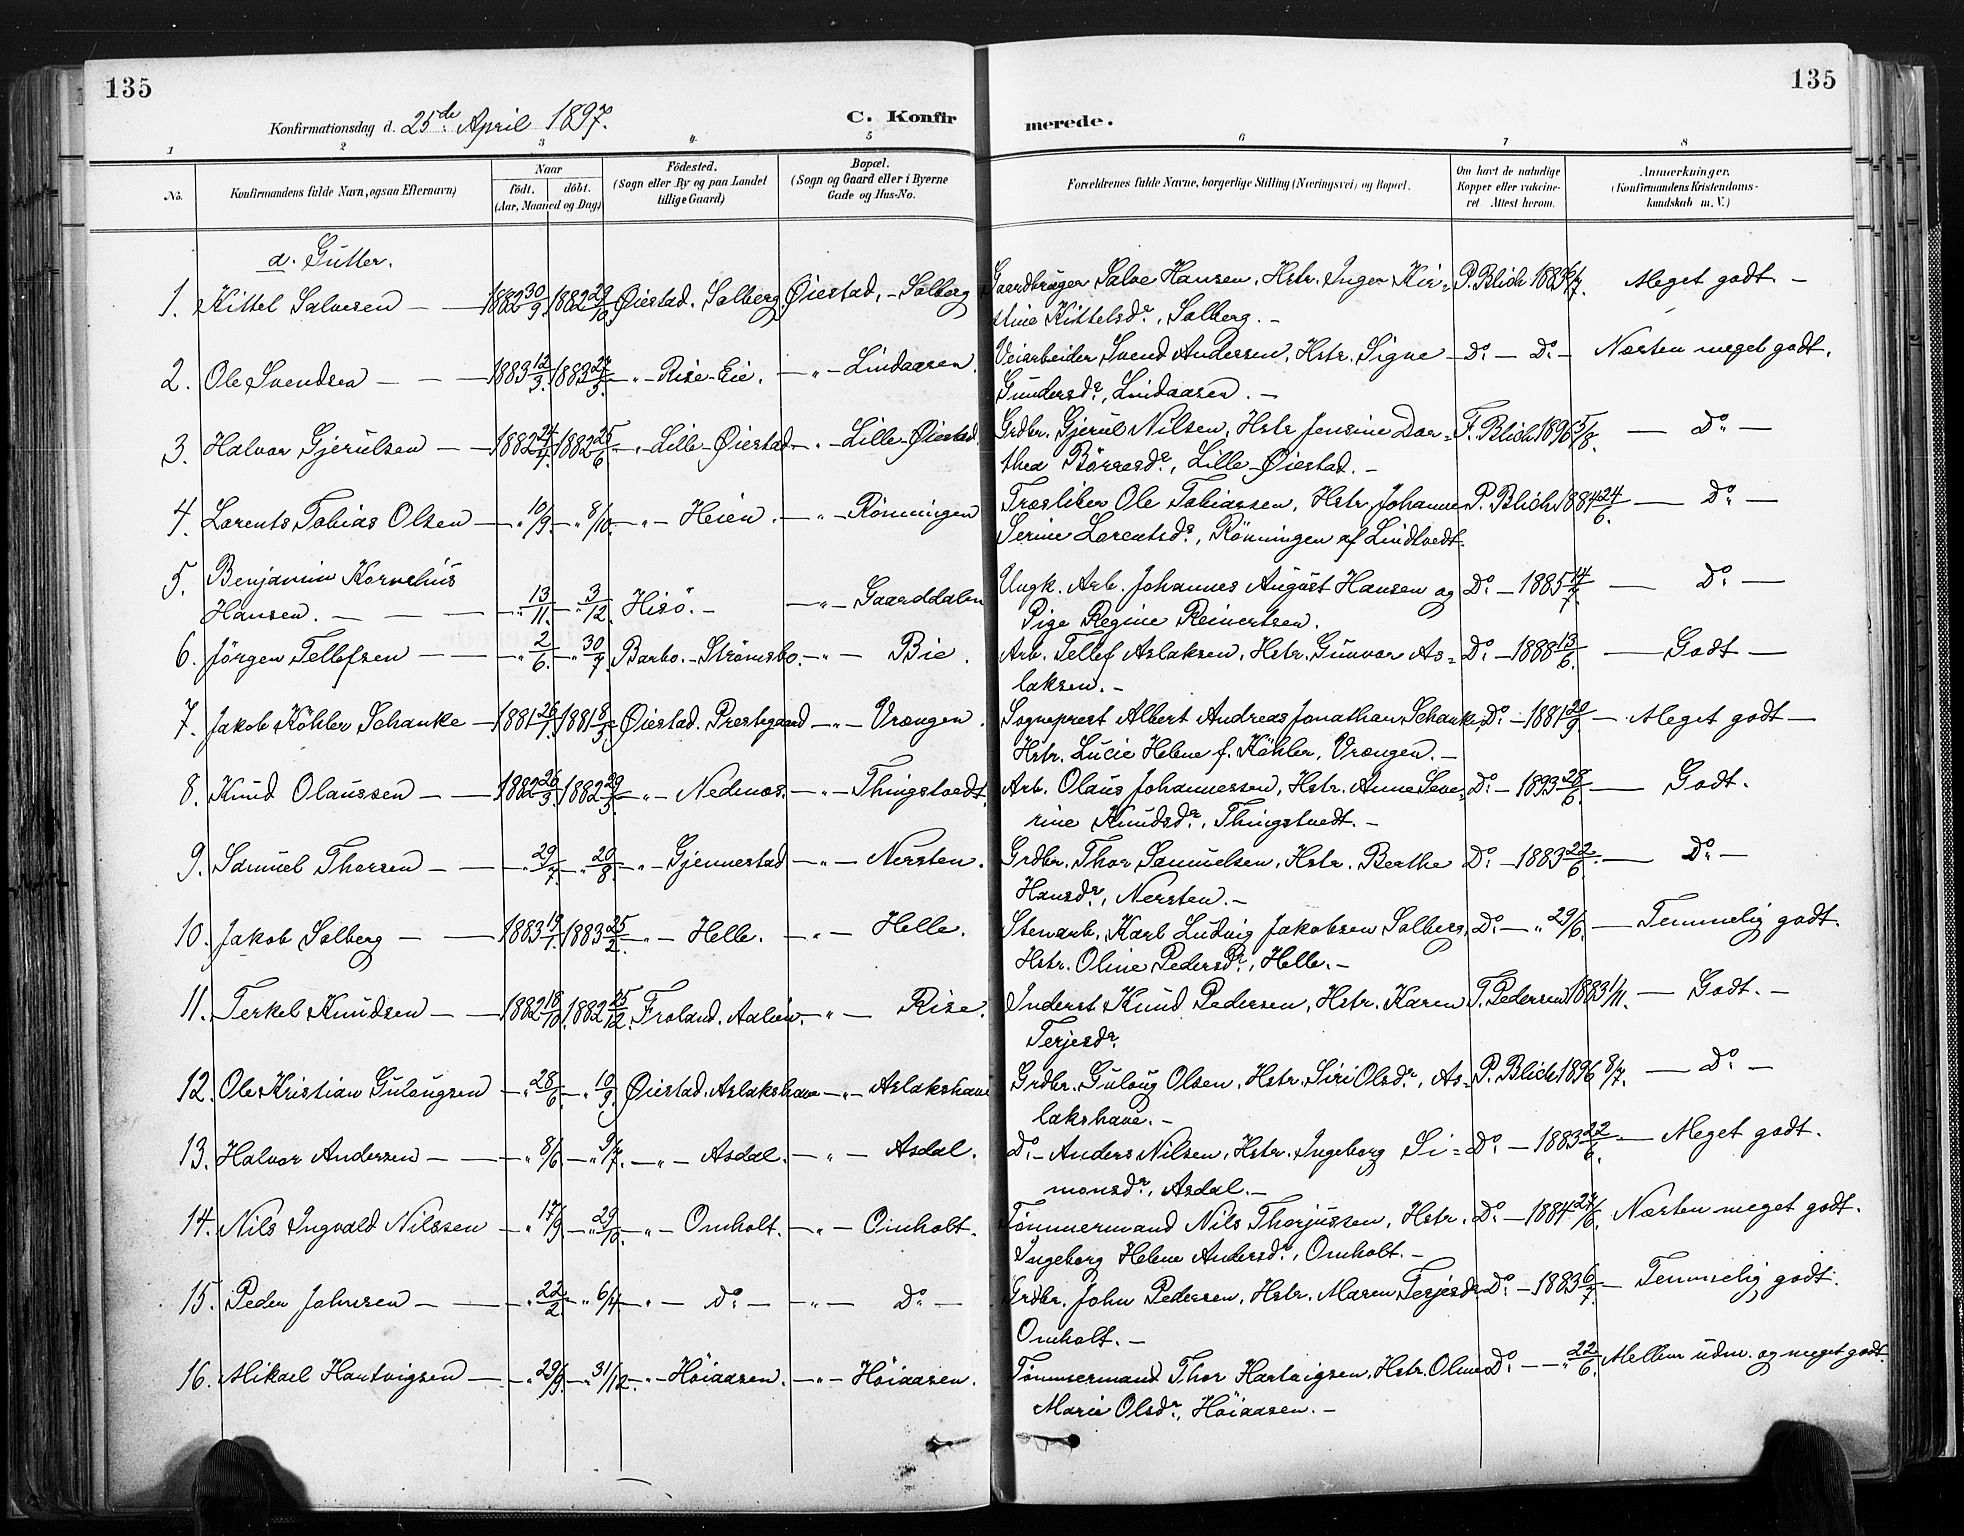 135
135
Konfirmationsdag d. 25de April 1897.
C. Konfirmerede.
1 2 3 4 5 6 7 8
No. Konfirmandens fulde Navn, ogsaa Efternavn) Naar födt. döbt. (Aar, Maaned og Dag) Födested. (Sogn eller By og paa Landet tillige Gaard) Bopæl. (Sogn og Gaard eller i Byerne Gade og Hus-No. Forældrenes fulde Navne, borgerlige Stilling (Næringsvei) og Bopæl. Om havt de naturlige Kopper eller vaccineret. Attest herom. Anmerkninger. (Konfirmandens Kristendomskundskab m. V.)
a. Gutter.
1. Kittel Salvesen — 1882 30/9. 1882 29/10 Øiestad. Solberg Øiestad, - Solberg Gaardbruger Salve Hansen, Hstr. Inger Kir= P. Blich 1883 Meget godt. —
stine Kittelsdr., Solberg. —
2. Ole Svendsen — — 1883 12/3. 1883 27/3. — „ — Rise-Eie. — „ — Lindaasen. Veiarbeider Svend Andersen, Hstr. Signe Do. — Do. — Næsten meget godt.
Gundersdr., Lindaasen. —
3. Halvor Gjerulsen — 1882 24/4. 1882 25/6. — „ — Lille-Øiestad — „ — Lille-Øiestad Grdbr. Gjerul Nilsen, Hstr. Jensine Dor= F. Blich 1896 5/8. — Do. —
thea Börresdr., Lille-Øiestad. —
4. Lorents Tobias Olsen — „ 10/9. — „ 8/10. — „ — Heien. — „ — Rönningen Træsliber Ole Tobiassen, Hstr. Johanne P. Blich 1884 24/6. — Do. —
Serine Lorentsdr., Rönningen af Lindtvedt.
5. Benjamin Kornelius
Hansen. — — — „ 13/11. — „ 3/12. Hisö. — — „ — Gaarddalen Ungk. Arb. Johannes August Hansen og Do. — 1885 14/7. — Do. —
Pige Regine Reinertsen.
6. Jörgen Tellefsen — — „ 2/6. — „ 30/7. Barbo. - Strömsbo. — „ — Bie. Arb. Tellef Aslaksen, Hstr. Gunvor As= Do. — 1888 13/6. — Godt —
laksen. —
7. Jakob Köhler Schanke — 1881 26/1. 1881 8/3. Øiestad. Prestegaard — „ — Vrængen. Sogneprest Albert Andreas Jonathan Schanke, Do. — 1881 29/9 — Meget godt —
Hstr. Lucie Helene f. Köhler, Vrængen. —
8. Knud Olaussen — — 1882 26/3. 1882 29/5. — „ — Nedenes. — „ — Thingstvedt. Arb. Olaus Johannessen, Hstr. Anne Seve= Do. — 1893 28/6. — Godt.
rine Knudsdr., Thingstvedt. —
9. Samuel Thorsen — — „ 29/7. — „ 20/8. — „ — Gjennestad — „ — Nersten. Grdbr. Thor Samuelsen, Hstr. Berthe Do. — 1883 22/6. — Do. —
Hansdr., Nersten. —
10. Jakob Solberg — — 1883 19/1. 1883 25/2. — „ — Helle. — „ — Helle. Stenarb. Karl Ludvig Jakobsen Solberg, Do. — „ 29/6. — Temmelig godt.
Hstr. Oline Pedersdr., Helle. —
11. Terkel Knudsen — 1882 18/10. 1882 25/12. Froland. — „ — Rise. Inderst Knud Pedersen, Hstr. Karen T. Pedersen 1883 1/11. — Godt. —
Terjesdr.
12. Ole Kristian Gulougsen — „ 28/6. — „ 10/9. Øiestad, Aslakshave — „ — Aslakshave Grdbr. Guloug Olsen, Hstr. Siri Olsdr., As= P. Blich 1896 8/7. — Do. —
lakshave. —
13. Halvor Andersen — — „ 8/6. — „ 9/7. — „ — Asdal. — „ — Asdal. Do. — Anders Nilsen, Hstr. Ingeborg Si= Do. — 1883 22/6. — Meget godt.
monsdr., Asdal. —
14. Nils Ingvald Nilssen — „ 17/9. — „ 29/10. — „ — Omholt. — „ — Omholt. Tömmermand Nils Thorjussen, Hstr. Do. — 1884 27/6. Næsten meget godt.
Ingeborg Helene Andersdr., Omholt. —
15. Peder Johnsen — — „ 22/2. — „ 6/4. — „ — Do. — — „ — Do. — Grdbr. John Pedersen, Hstr. Maren Terjesdr. Do. — 1883 6/7. — Temmelig godt.
Omholt. —
16. Mikael Hartvigsen — — „ 29/9. — „ 31/12. — „ — Höiaasen. — „ — Höiaasen. Tömmermand Thor Hartvigsen, Hstr. Oline Do. — — „ 22/6. Mellem udm. og meget godt.
Marie Olsdr., Höiaasen. —